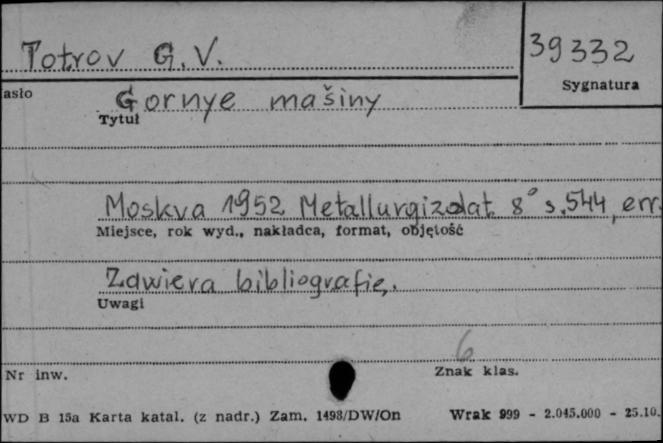 Totrov G.V.
39332
Sygnatura
asło
Gornye mašiny
Tytuł
Moskva 1952 Metallurgizdat 8° s.544, err.
Miejsce, rok wyd., nakładca, format, objętość
Zawiera bibliografię.
Uwagi
6
Nr inw.
Znak klas.
WD B 15a Karta katal. (z nadr.) Zam. 1498/DW/On
Wrak 999 - 2.045.000 - 25.10.